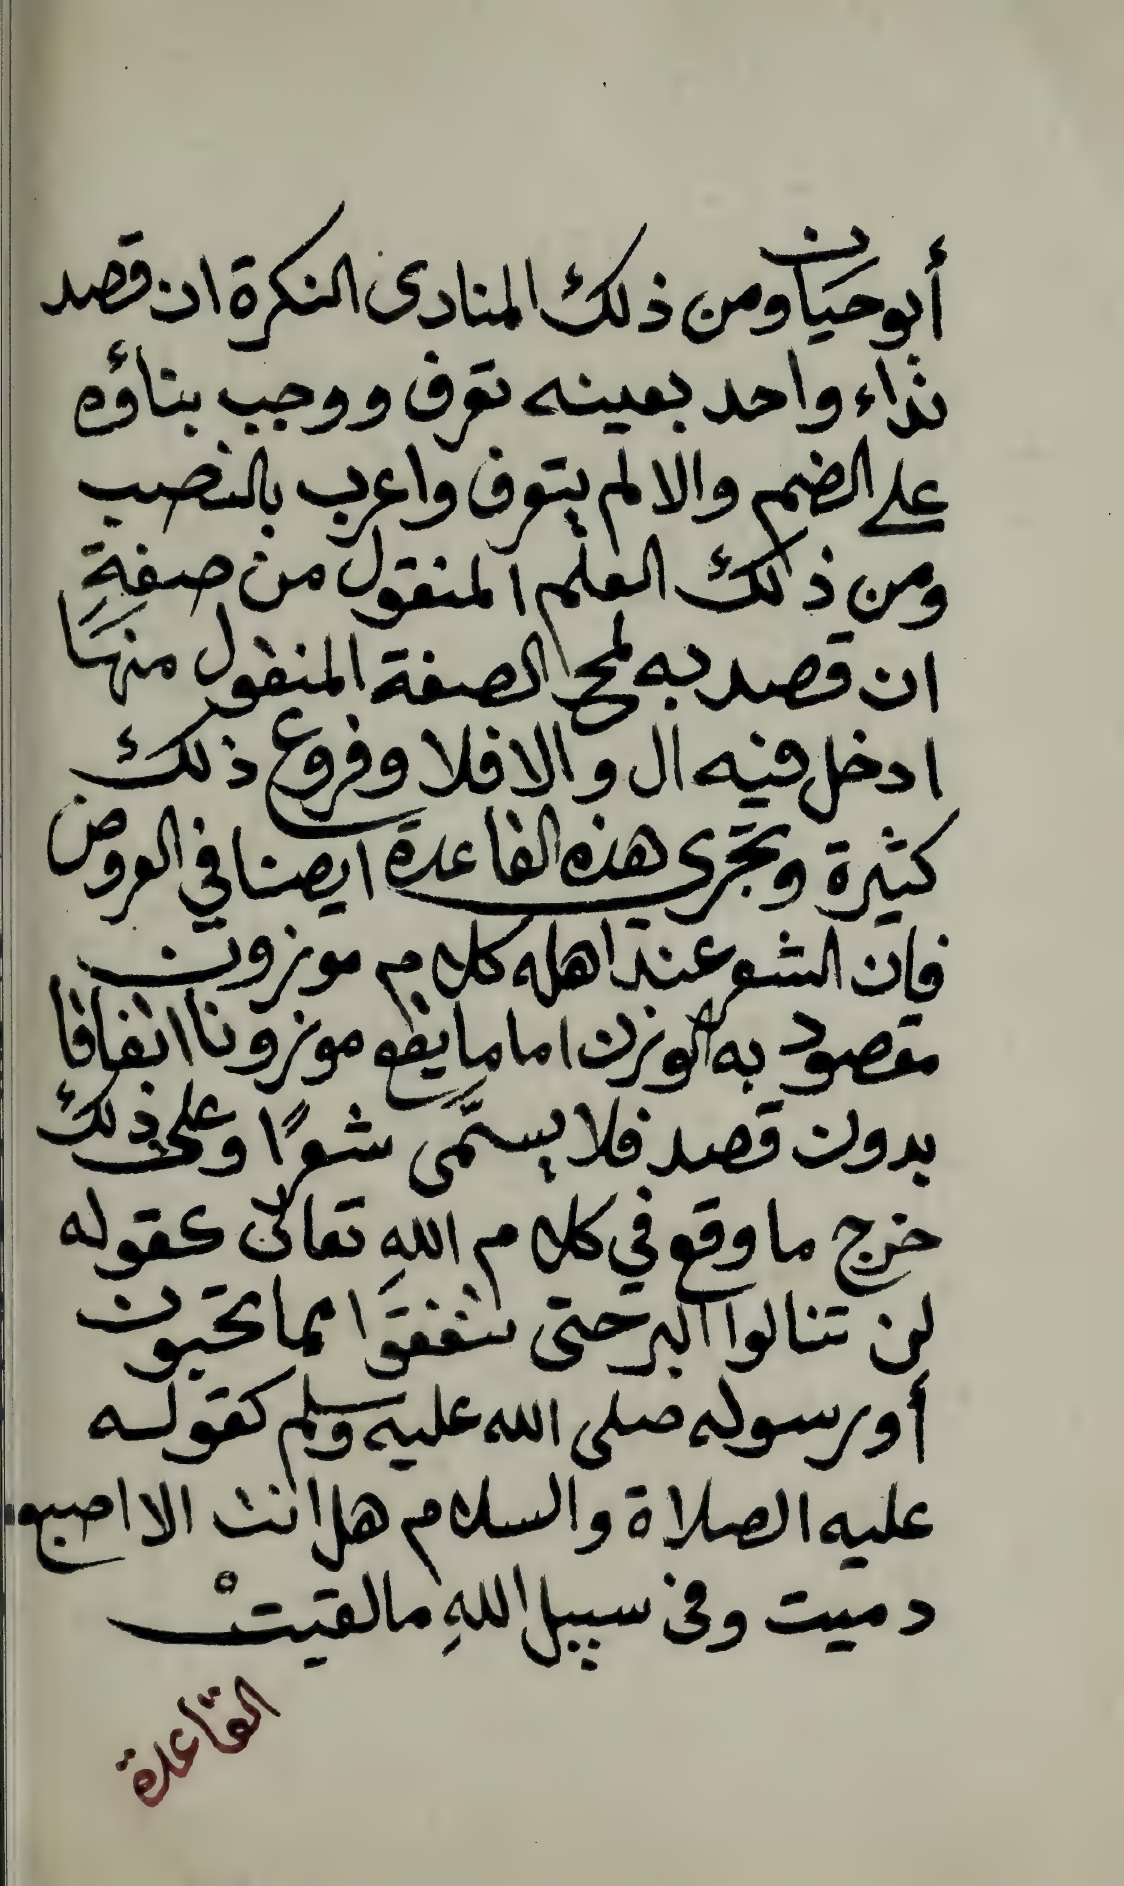 أبوحيان ومن ذلك المنادى النكرة ان قصد
نداء واحد بعينه تعرف ووجب بناؤه
على الضم والا لم يتعرف واعرب بالنصب
ومن ذلك العلم المنقول من صفةٍ
ان قصد به لمح الصفة المنقول منها
ادخل فيه ال والا فلا وفروع ذلك
كثيرة وتجرى هذه القاعدة ايضا في العروض
فان الشعر عند اهله كلام موزون
مقصود به الوزن اما ما يقع موزونا اتفاقا
بدون قصد فلا يسمّى شعرًا وعلى ذلك
خرج ما وقع في كلام اللهِ تعالى كقوله
لن تنالوا البر حتى تنفقوا مما تحبون
أو رسوله صلى الله عليه وسلم كقوله
عليه الصلاة والسلام هل انت الا اصبع
دميت وفى سبيل اللهِ ما لقيتْ
القاعدة